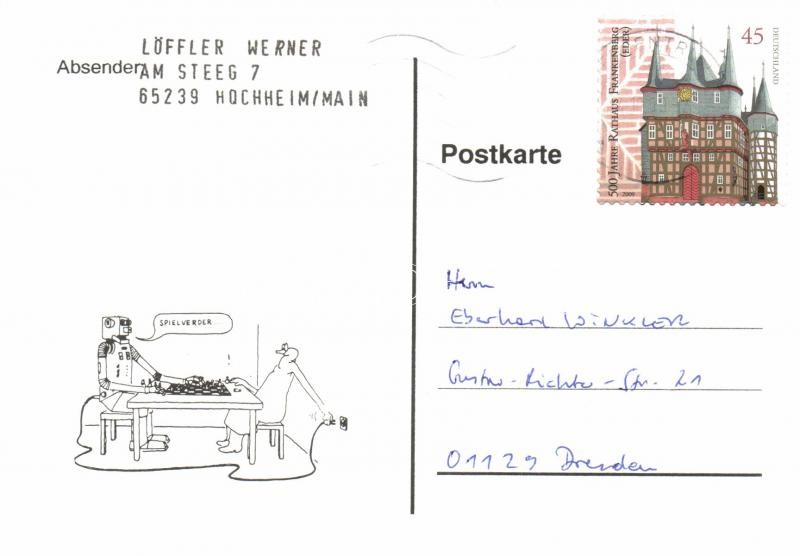 LÖFFLER WERNER
Absender:
AM STEEG 7
65239 HOCHHEIM/MAIN
SPIELVERDER...
Postkarte
500 JAHRE RATHAUS FRANKENBERG
(EDER)
45
DEUTSCHLAND
2009
Herrn
Eberhard WINKLER
Gustav-Richter-Str. 21
01129 Dresden